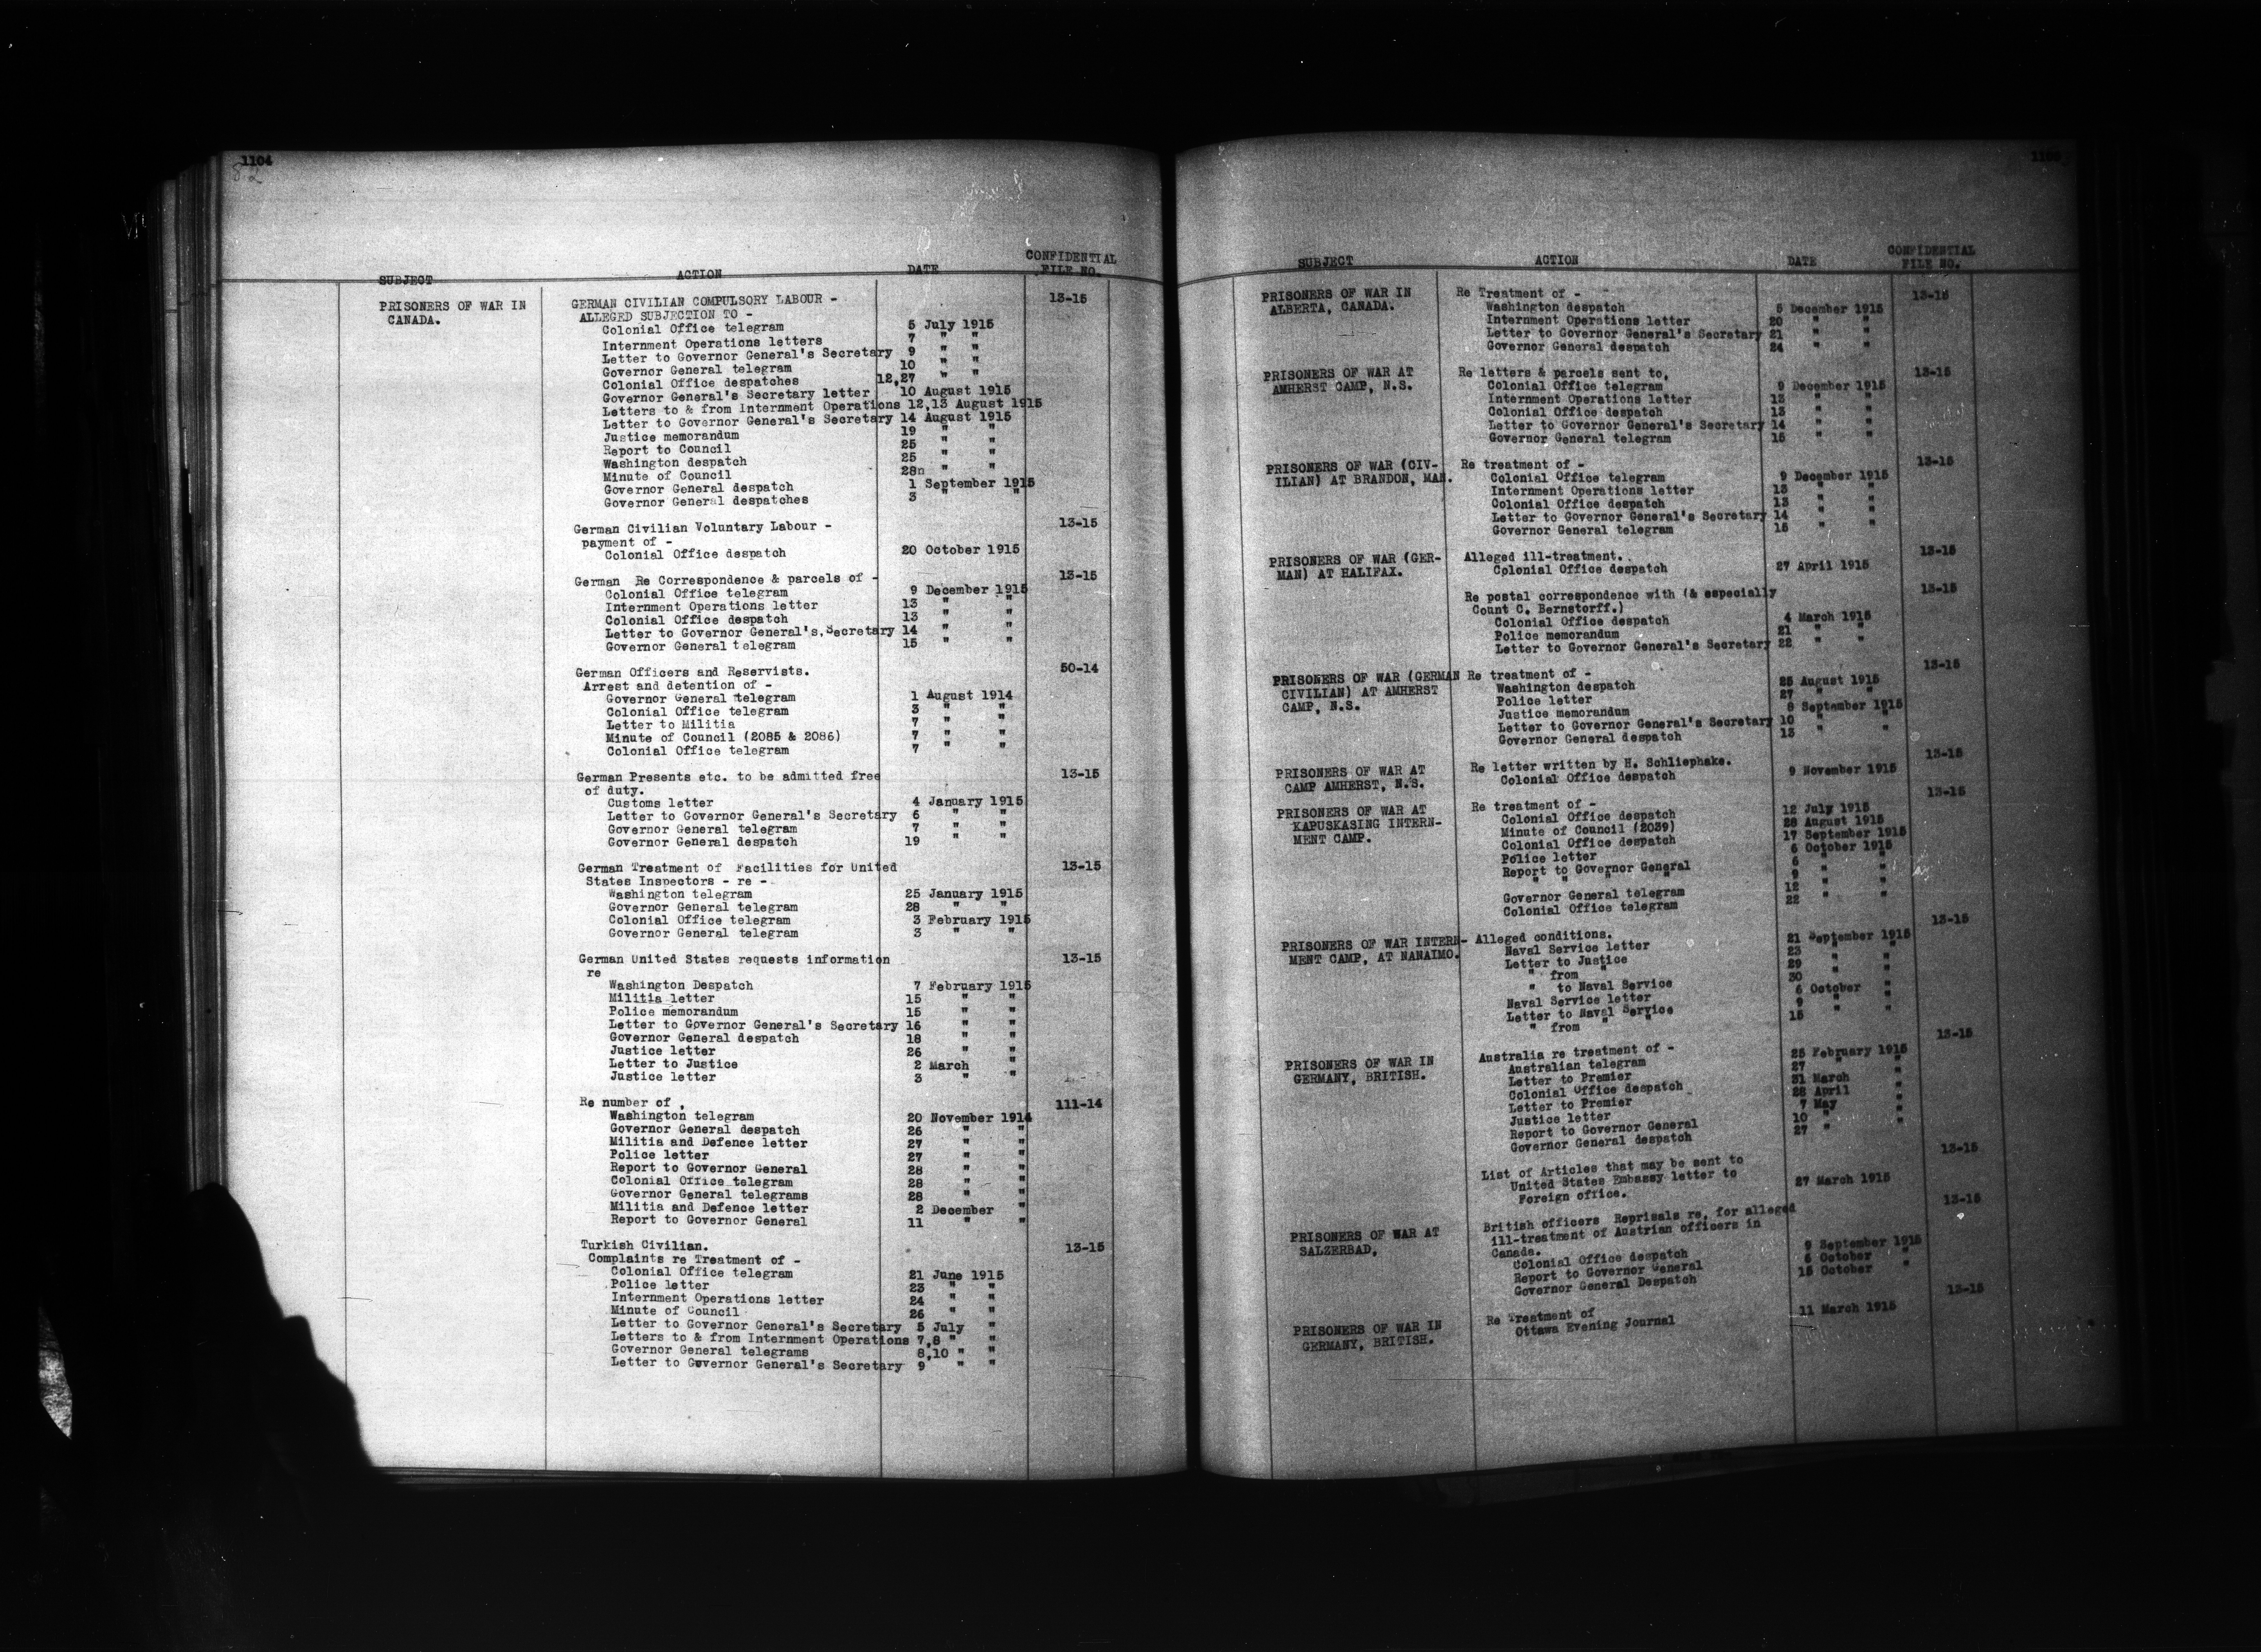 1104
82
SUBJECT ACTION DATE CONFIDENTIAL FILE NO.
PRISONERS OF WAR IN CANADA.
GERMAN CIVILIAN COMPULSORY LABOUR - 13-15
ALLEGED SUBJECTION TO -
Colonial Office telegram 5 July 1915
Internment Operations letters 7 " "
Letter to Governor General's Secretary 9 " "
Governor General telegram 10 " "
Colonial Office despatches 12,27 " "
Governor General's Secretary letter 10 August 1915
Letters to & from Internment Operations 12,13 August 1915
Letter to Governor General's Secretary 14 August 1915
Justice memorandum 19 " "
Report to Council 25 " "
Washington despatch 25 " "
Minute of Council 28n " "
Governor General despatch 1 September 1915
Governor General despatches 3 " "
German Civilian Voluntary Labour - 13-15
payment of -
Colonial Office despatch 20 October 1915
German Re Correspondence & parcels of - 13-15
Colonial Office telegram 9 December 1915
Internment Operations letter 13 " "
Colonial Office despatch 13 " "
Letter to Governor General's.Secretary 14 " "
Governor General telegram 15 " "
German Officers and Reservists. 50-14
Arrest and detention of -
Governor General telegram 1 August 1914
Colonial Office telegram 3 " "
Letter to Militia 7 " "
Minute of Council (2085 & 2086) 7 " "
Colonial Office telegram 7 " "
German Presents etc. to be admitted free 13-15
of duty.
Customs letter 4 January 1915
Letter to Governor General's Secretary 6 " "
Governor General telegram 7 " "
Governor General despatch 19 " "
German Treatment of Facilities for United 13-15
States Inspectors - re -
Washington telegram 25 January 1915
Governor General telegram 28 " "
Colonial Office telegram 3 February 1915
Governor General telegram 3 " "
German United States requests information 13-15
re
Washington Despatch 7 February 1915
Militia letter 15 " "
Police memorandum 15 " "
Letter to Governor General's Secretary 16 " "
Governor General despatch 18 " "
Justice letter 26 " "
Letter to Justice 2 March "
Justice letter 3 " "
Re number of , 111-14
Washington telegram 20 November 1914
Governor General despatch 26 " "
Militia and Defence letter 27 " "
Police letter 27 " "
Report to Governor General 28 " "
Colonial Office telegram 28 " "
Governor General telegrams 28 " "
Militia and Defence letter 2 December "
Report to Governor General 11 " "
Turkish Civilian. 13-15
Complaints re Treatment of -
Colonial Office telegram 21 June 1915
Police letter 23 " "
Internment Operations letter 24 " "
Minute of Council 26 " "
Letter to Governor General's Secretary 5 July "
Letters to & from Internment Operations 7,8 " "
Governor General telegrams 8,10 " "
Letter to Governor General's Secretary 9 " "
SUBJECT ACTION DATE CONFIDENTIAL FILE NO.
PRISONERS OF WAR IN ALBERTA, CANADA.
Re Treatment of - 13-15
Washington despatch 5 December 1915
Internment Operations letter 20 " "
Letter to Governor General's Secretary 21 " "
Governor General despatch 24 " "
PRISONERS OF WAR AT AMHERST CAMP, N.S.
Re letters & parcels sent to, 13-15
Colonial Office telegram 9 December 1915
Internment Operations letter 13 " "
Colonial Office despatch 13 " "
Letter to Governor General's Secretary 14 " "
Governor General telegram 15 " "
PRISONERS OF WAR (CIV-
ILIAN) AT BRANDON, MAN.
Re treatment of - 13-15
Colonial Office telegram 9 December 1915
Internment Operations letter 13 " "
Colonial Office despatch 13 " "
Letter to Governor General's Secretary 14 " "
Governor General telegram 15 " "
PRISONERS OF WAR (GER-
MAN) AT HALIFAX.
Alleged ill-treatment. 13-15
Colonial Office despatch 27 April 1915
Re postal correspondence with (& especially 13-15
Count C. Bernstorff.)
Colonial Office despatch 4 March 1915
Police memorandum 21 " "
Letter to Governor General's Secretary 22 " "
PRISONERS OF WAR (GERMAN
CIVILIAN) AT AMHERST
CAMP, N.S.
Re treatment of - 13-15
Washington despatch 25 August 1915
Police letter 27 " "
Justice memorandum 8 September 1915
Letter to Governor General's Secretary 10 " "
Governor General despatch 13 " "
PRISONERS OF WAR AT
CAMP AMHERST, N.S.
Re letter written by H. Schliephake. 13-15
Colonial Office despatch 9 November 1915
PRISONERS OF WAR AT
KAPUSKASING INTERN-
MENT CAMP.
Re treatment of - 13-15
Colonial Office despatch 12 July 1915
Minute of Council (2039) 28 August 1915
Colonial Office despatch 17 September 1915
Police letter 6 October 1915
Report to Governor General 6 " "
" " " " 9 " "
Governor General telegram 12 " "
Colonial Office telegram 22 " "
PRISONERS OF WAR INTERN-
MENT CAMP, AT NANAIMO.
Alleged conditions. 13-15
Naval Service letter 21 September 1915
Letter to Justice 23 " "
" from " 29 " "
" to Naval Service 30 " "
Naval Service letter 6 October "
Letter to Naval Service 9 " "
" from " " 15 " "
PRISONERS OF WAR IN
GERMANY, BRITISH.
Australia re treatment of - 13-15
Australian telegram 25 February 1915
Letter to Premier 27 " "
Colonial Office despatch 31 March "
Letter to Premier 28 April "
Justice letter 7 May "
Report to Governor General 10 " "
Governor General despatch 27 " "
List of Articles that may be sent to 13-15
United States Embassy letter to
Foreign office. 27 March 1915
PRISONERS OF WAR AT
SALZERBAD,
British officers Reprisals re, for alleged 13-15
ill-treatment of Austrian officers in
Canada.
Colonial Office despatch 9 September 1915
Report to Governor General 6 October "
Governor General Despatch 15 October "
PRISONERS OF WAR IN
GERMANY, BRITISH.
Re Treatment of 13-15
Ottawa Evening Journal 11 March 1915